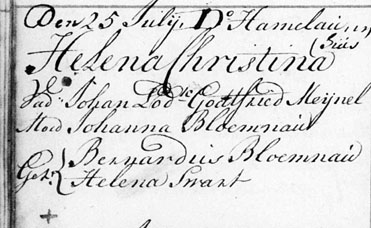 Den 25 Julij, Do Hamelau
Helena Christina
Vad. Johan Lod. Gottfried Meijnel
Moed Johanna Bloemnau
Bernardus Bloemnau
Get. Helena Swart